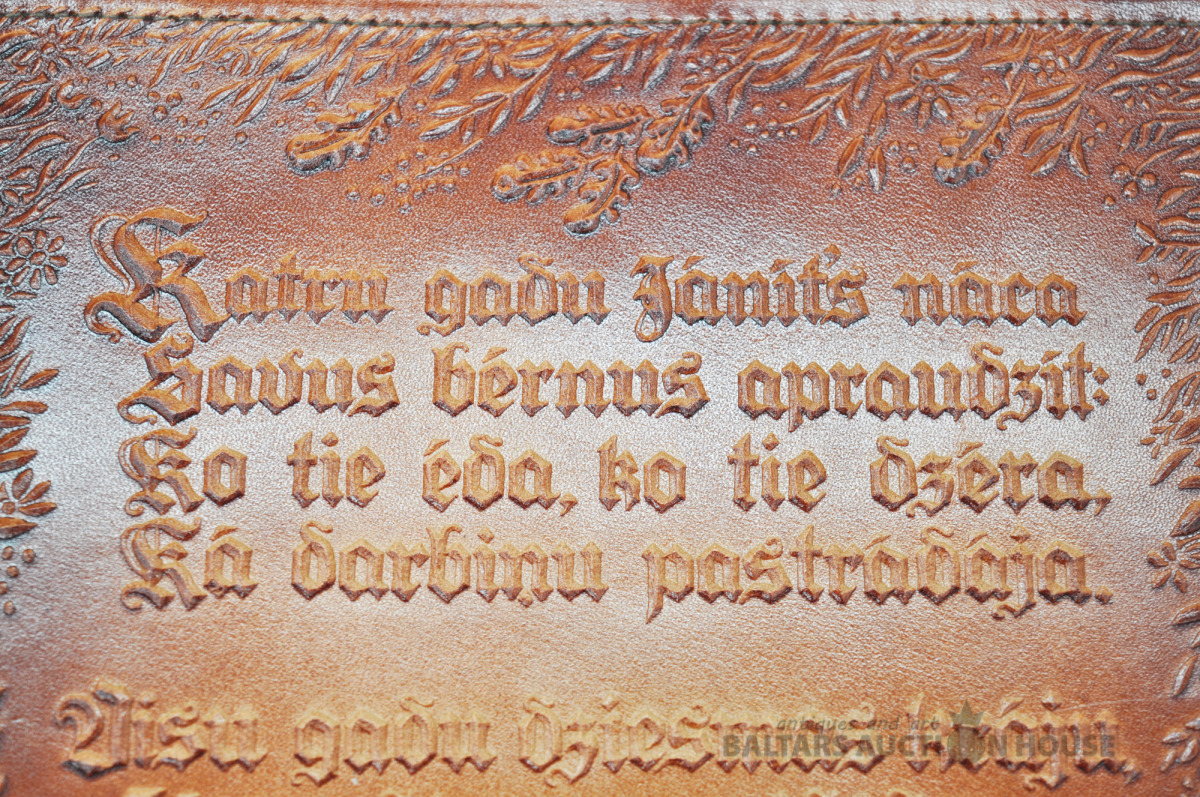 Katru gadu Jānīt's nāca
Savus bērnus apraudzīt:
Ko tie ēda, ko tie dzēra,
Kā darbiņu pastrādāja.
Visu gadu dziesmas krāju,
antiques and art
BALTARS AUCTION HOUSE